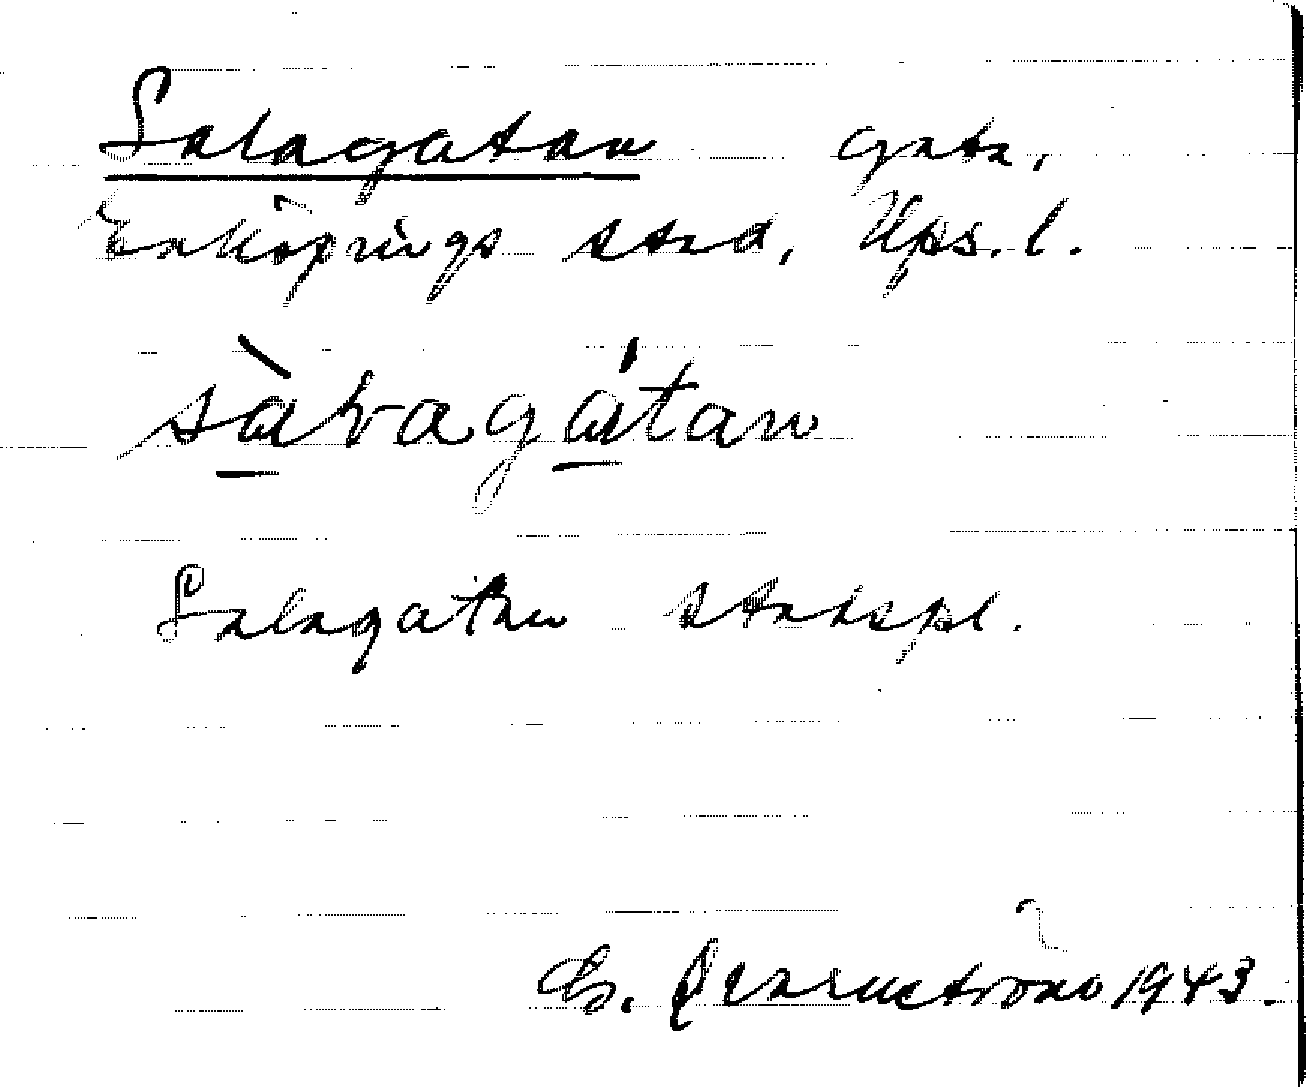 Salagatan gata,
Enköpings stad, Ups. l.
sàlagátan
Salagatan stadspl.
G. Qvarnström 1943.